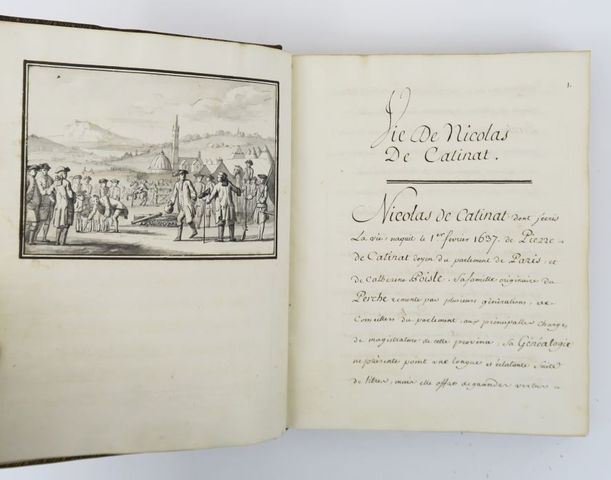 1.
Vie De Nicolas
De Catinat.
Nicolas de Catinat dont j'écris
la vie, naquit le 1er février 1637. de Pierre
de Catinat doyen du parlement de Paris, et
de Catherine Poisle. Sa famille originaire du
Perche remonte par plusieurs générations, de
Conseillers du parlement, aux principalles charges
de magistrature de cette province. Sa Généalogie
ne présente point une longue et éclatante suite
de titres, mais elle offre de grandes vertus